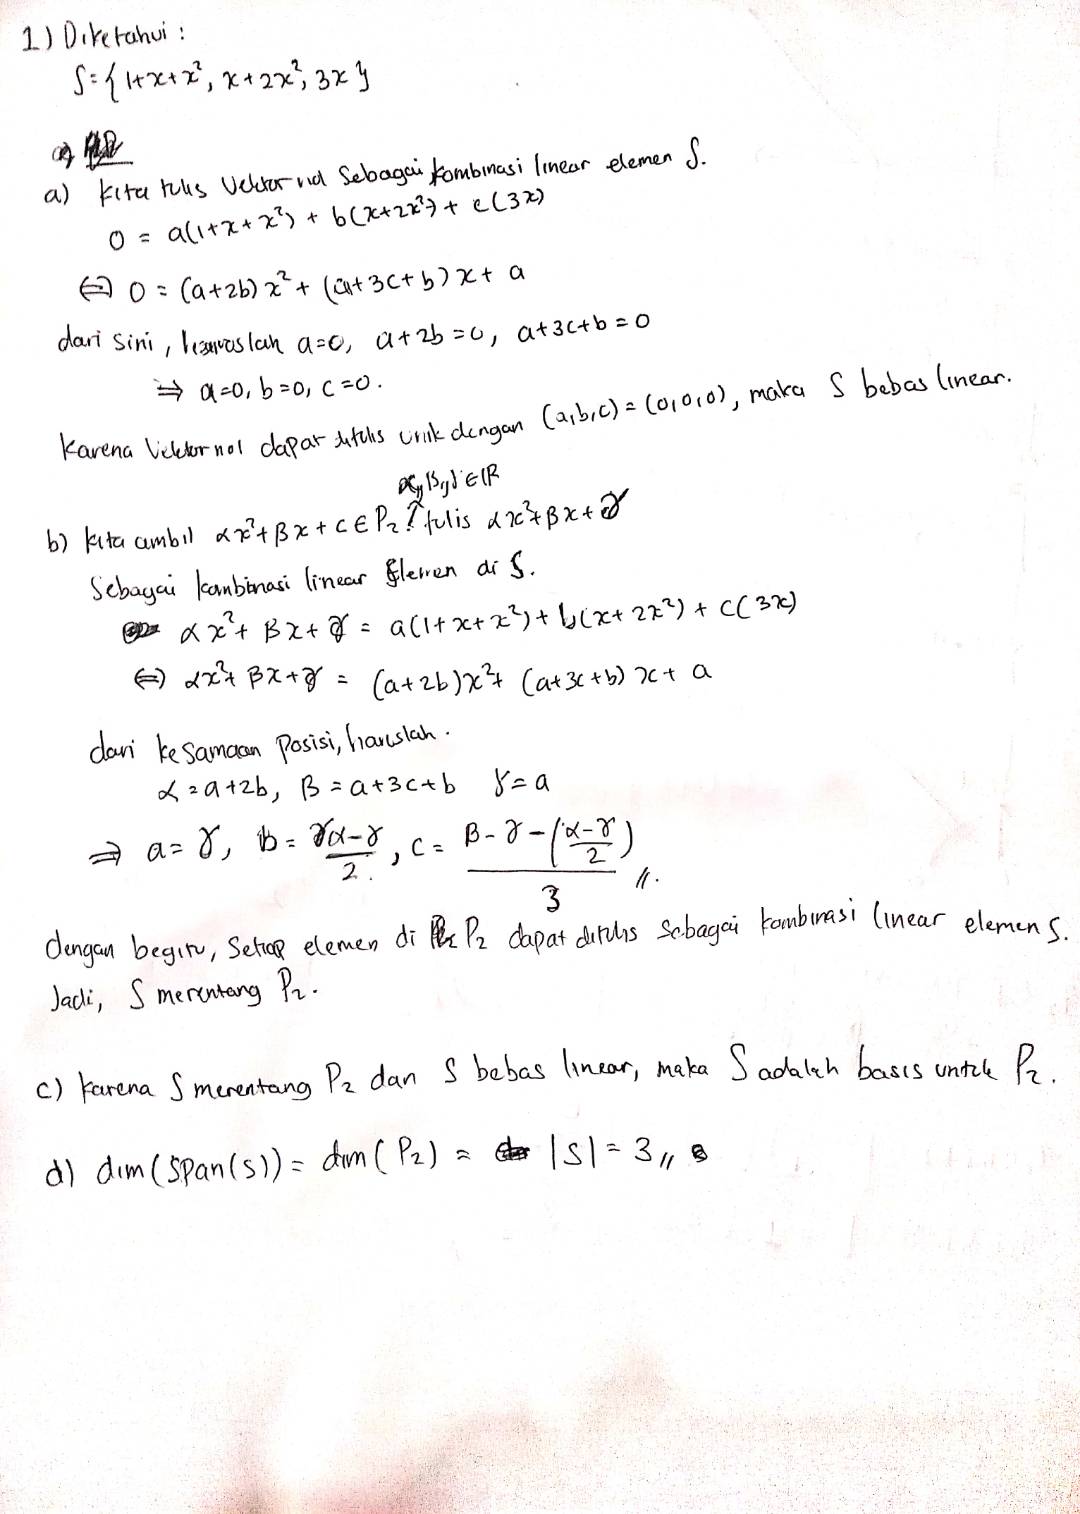 1) Diketahui :
S = { 1+x+x², x+2x², 3x }
a) kita tulis Vektor nol Sebagai kombinasi linear elemen S.
0 = a(1+x+x²) + b(x+2x²) + c(3x)
⇔ 0 = (a+2b)x² + (a+3c+b)x + a
dari sini, haruslah a=0, a+2b=0, a+3c+b=0
⇒ a=0, b=0, c=0.
Karena Vektor nol dapat ditulis unik dengan (a,b,c) = (0,0,0), maka S bebas linear.
α, β, γ ∈ ℝ
b) kita ambil αx²+βx+c ∈ P₂ tulis αx²+βx+γ
Sebagai kombinasi linear elemen di S.
αx²+βx+γ = a(1+x+x²) + b(x+2x²) + c(3x)
⇔ αx²+βx+γ = (a+2b)x² + (a+3c+b)x + a
dari kesamaan posisi, haruslah.
α = a+2b, β = a+3c+b γ = a
⇒ a = γ, b = (α-γ)/2, c = (β-γ-((α-γ)/2))/3 //.
dengan begitu, Setiap elemen di P₂ dapat ditulis sebagai kombinasi linear elemen S.
Jadi, S merentang P₂.
c) karena S merentang P₂ dan S bebas linear, maka S adalah basis untuk P₂.
d) dim(Span(S)) = dim(P₂) = |S| = 3 //